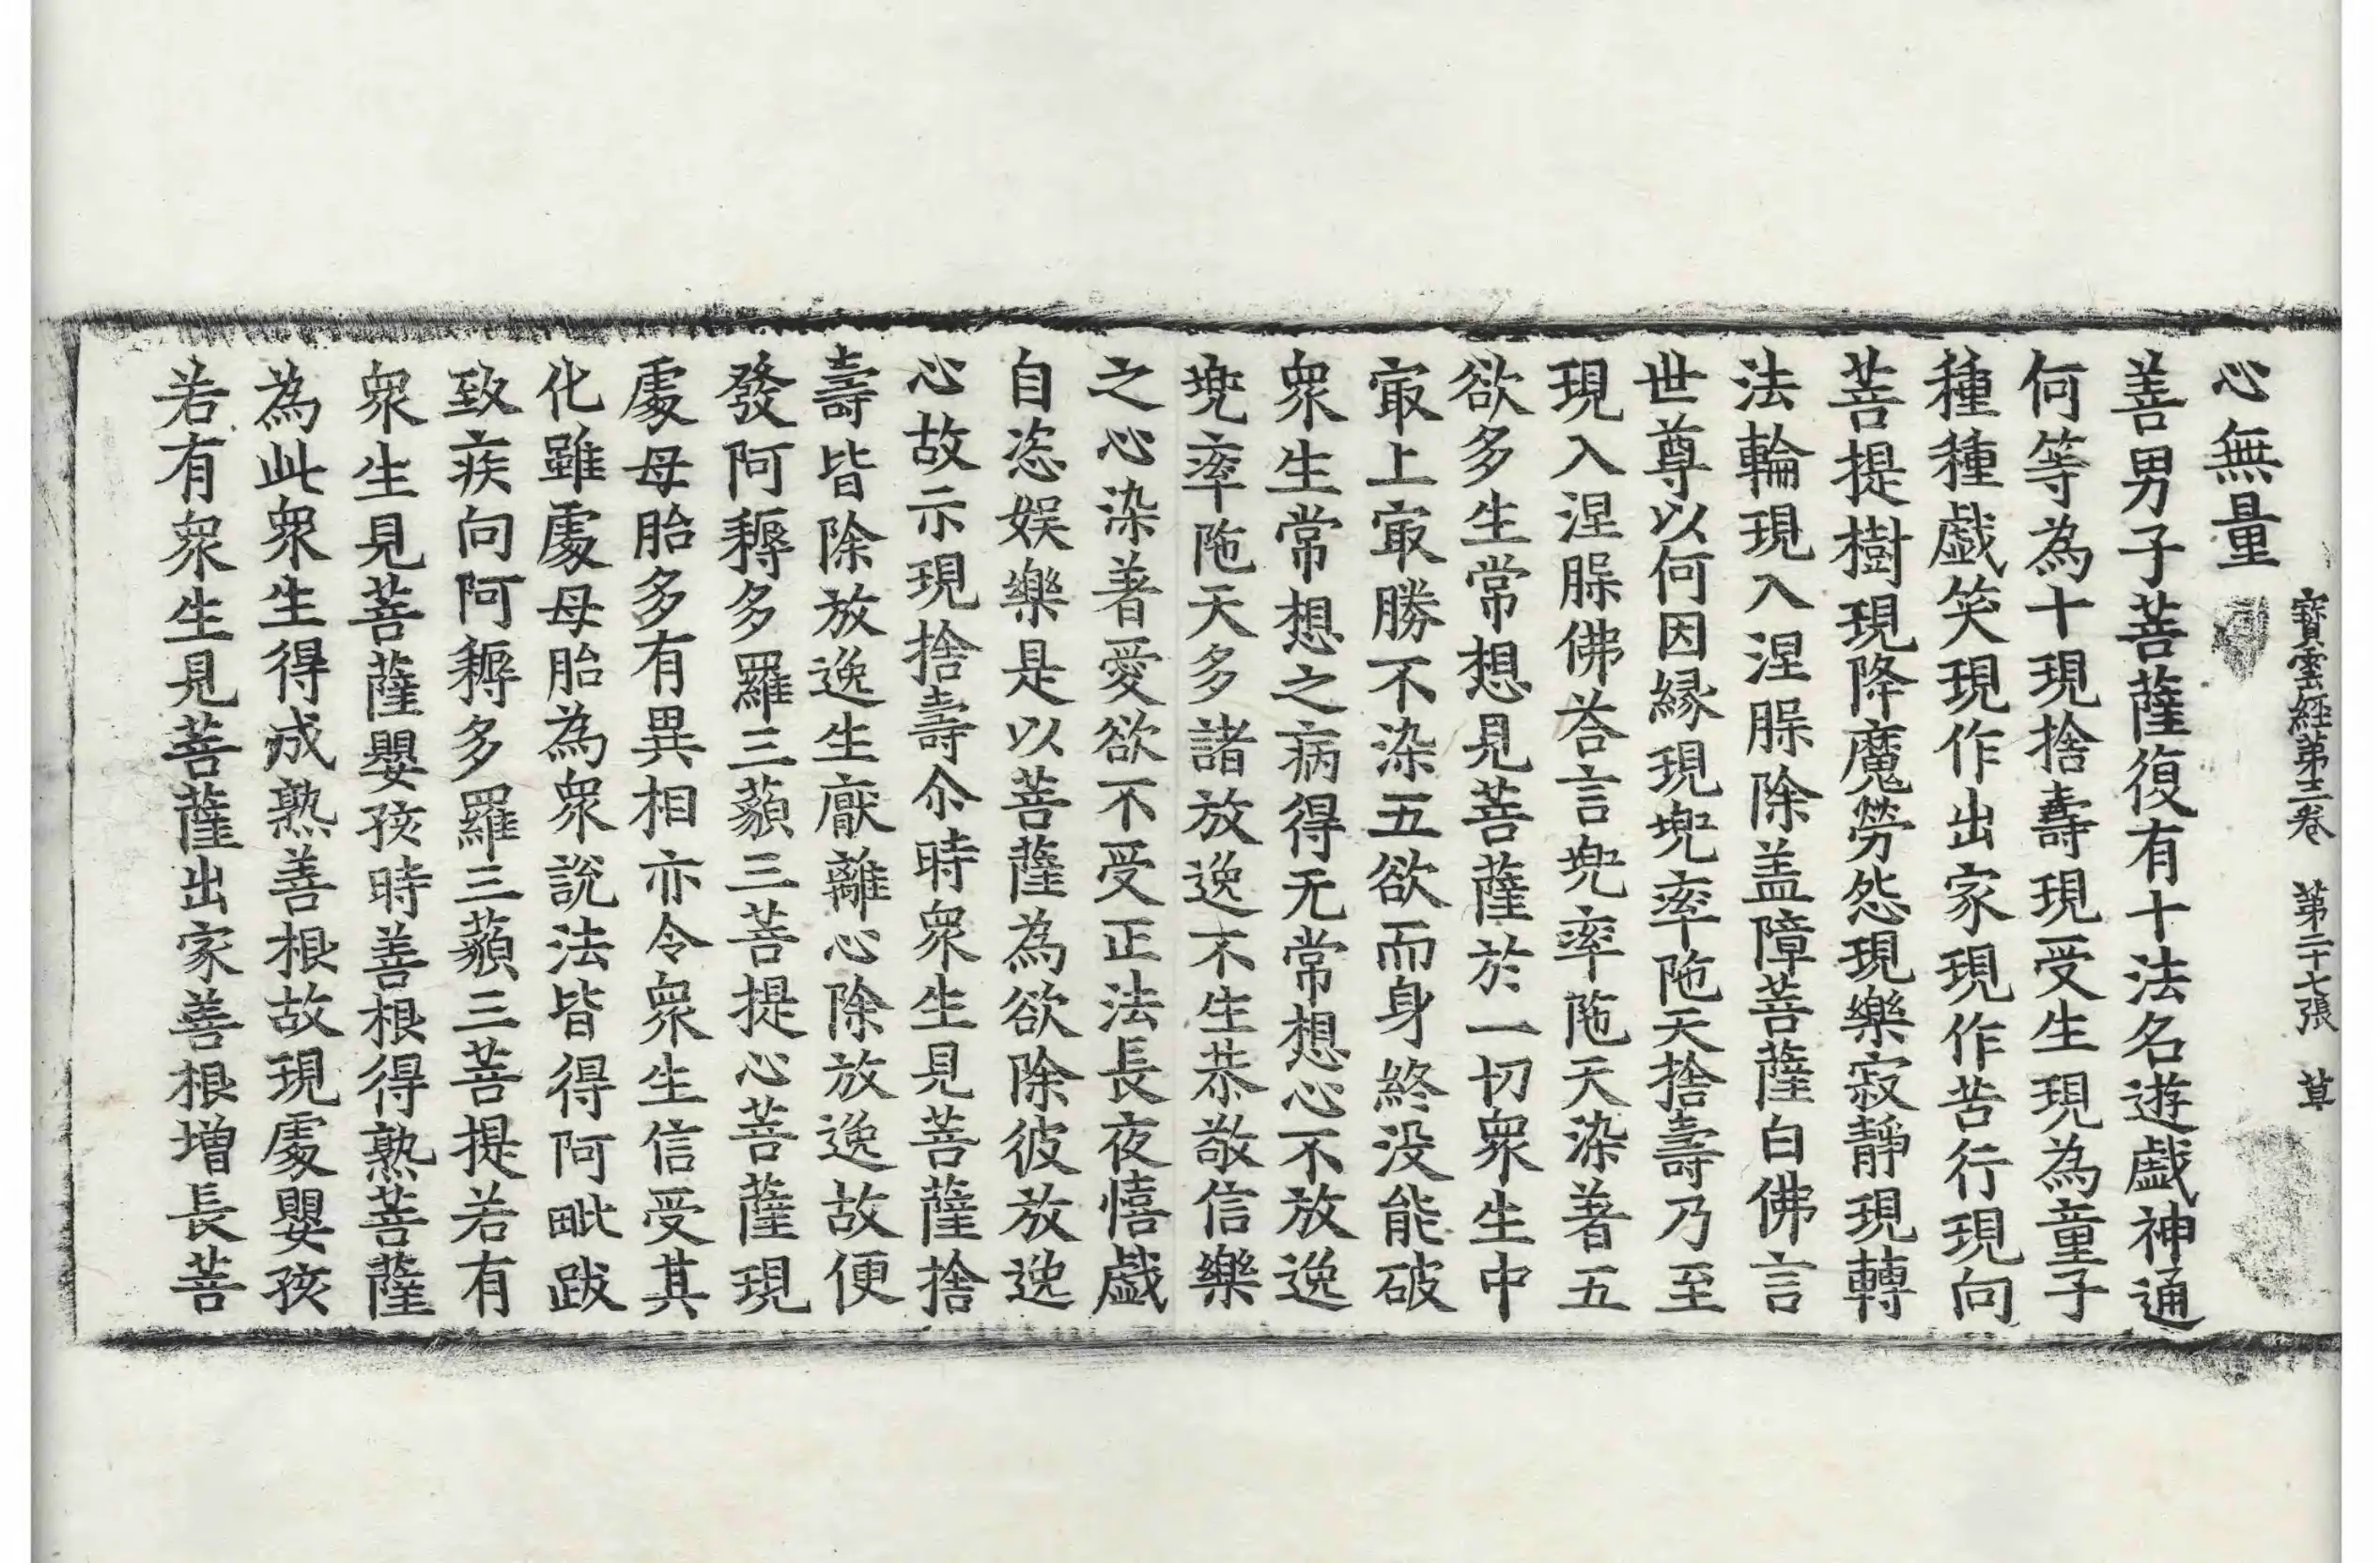 寶雲經第二卷　第二十七張　草
心無量
善男子菩薩復有十法名遊戯神通
何等為十現捨壽現受生現為童子
種種戯笑現作出家現作苦行現向
菩提樹現降魔勞怨現樂寂靜現轉
法輪現入涅脲除盖障菩薩白佛言
世尊以何因縁現兜率陁天捨壽乃至
現入涅脲佛荅言兜率陁天染著五
欲多生常想見菩薩於一切衆生中
冣上冣勝不染五欲而身終没能破
衆生常想之病得无常想心不放逸
兜率陁天多諸放逸不生恭敬信樂
之心染著愛欲不受正法長夜憘戯
自恣娛樂是以菩薩為欲除彼放逸
心故示現捨壽尒時衆生見菩薩捨
壽皆除放逸生猒離心除放逸故便
發阿耨多羅三藐三菩提心菩薩現
處母胎多有異相亦令衆生信受其
化雖處母胎為衆說法皆得阿毗跋
致疾向阿耨多羅三藐三菩提若有
衆生見菩薩嬰孩時善根得熟菩薩
為此衆生得成熟善根故現處嬰孩
若有衆生見菩薩出家善根增長菩